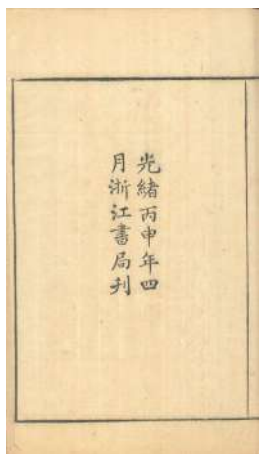 光緒丙申年四
月浙江書局刋